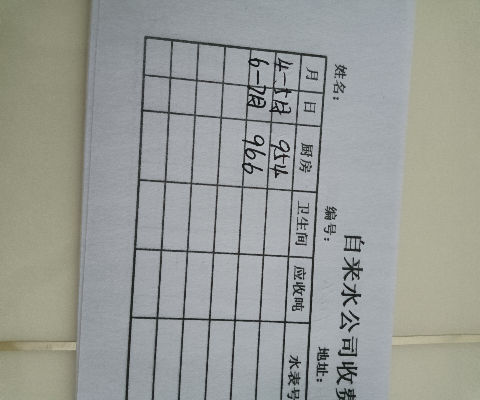 自来水公司收费
姓名： 编号： 地址：
月 日 厨房 卫生间 应收吨 水表号
4-5月 954
6-7月 966